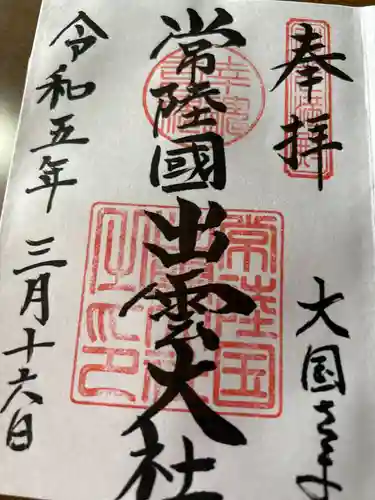 奉拝
大国さま
常陸國出雲大社
令和五年三月十六日
常陸国出雲大社之印